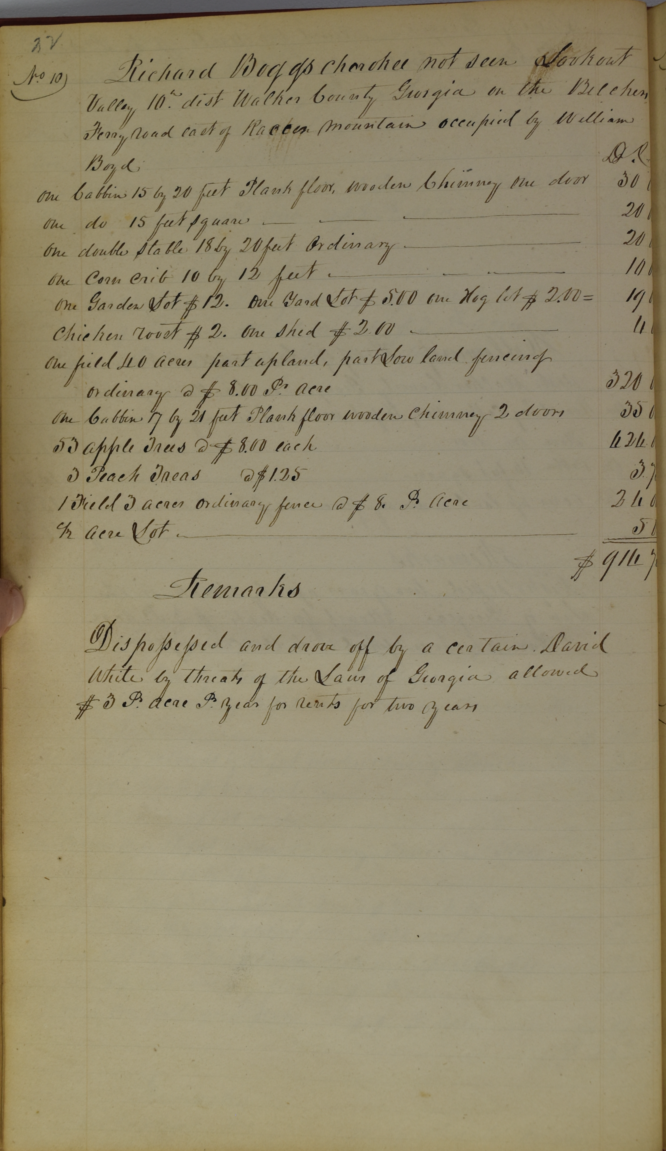 22
No 10) Richard Boggs cherokee not seen Lookout
Valley 10th dist Walker County Georgia on the
Ferry road east of Raccon Mountain occupied by William
Boyd
one Cabbin 15 by 20 feet Plank floor, wooden Chimney one door 30
one do 15 feet square 20
one double stable 18 by 20 feet Ordinary 20
one corn crib 10 by 12 feet 10
one Garden Lot $12. one Yard Lot $5.00 one Hog lot $2.00= 19
Chicken roost $2. one shed $2.00 4
one field 40 acres part upland, part Low land fencing
ordinary @ $8.00 Pr acre 320
one Cabbin 17 by 21 feet Plank floor wooden chimney 2 doors 35
53 apple Trees @ $8.00 each 424
3 Peach Treas @ $1.25 3
1 Field 3 acres ordinary fence @ $8 Pr Acre 24
½ acre Lot 5
$ 914
Remarks
Dispossessed and drove off by a certain David
White by threats of the Laws of Georgia allowed
$3 Pr acre Pr year for rents for two years